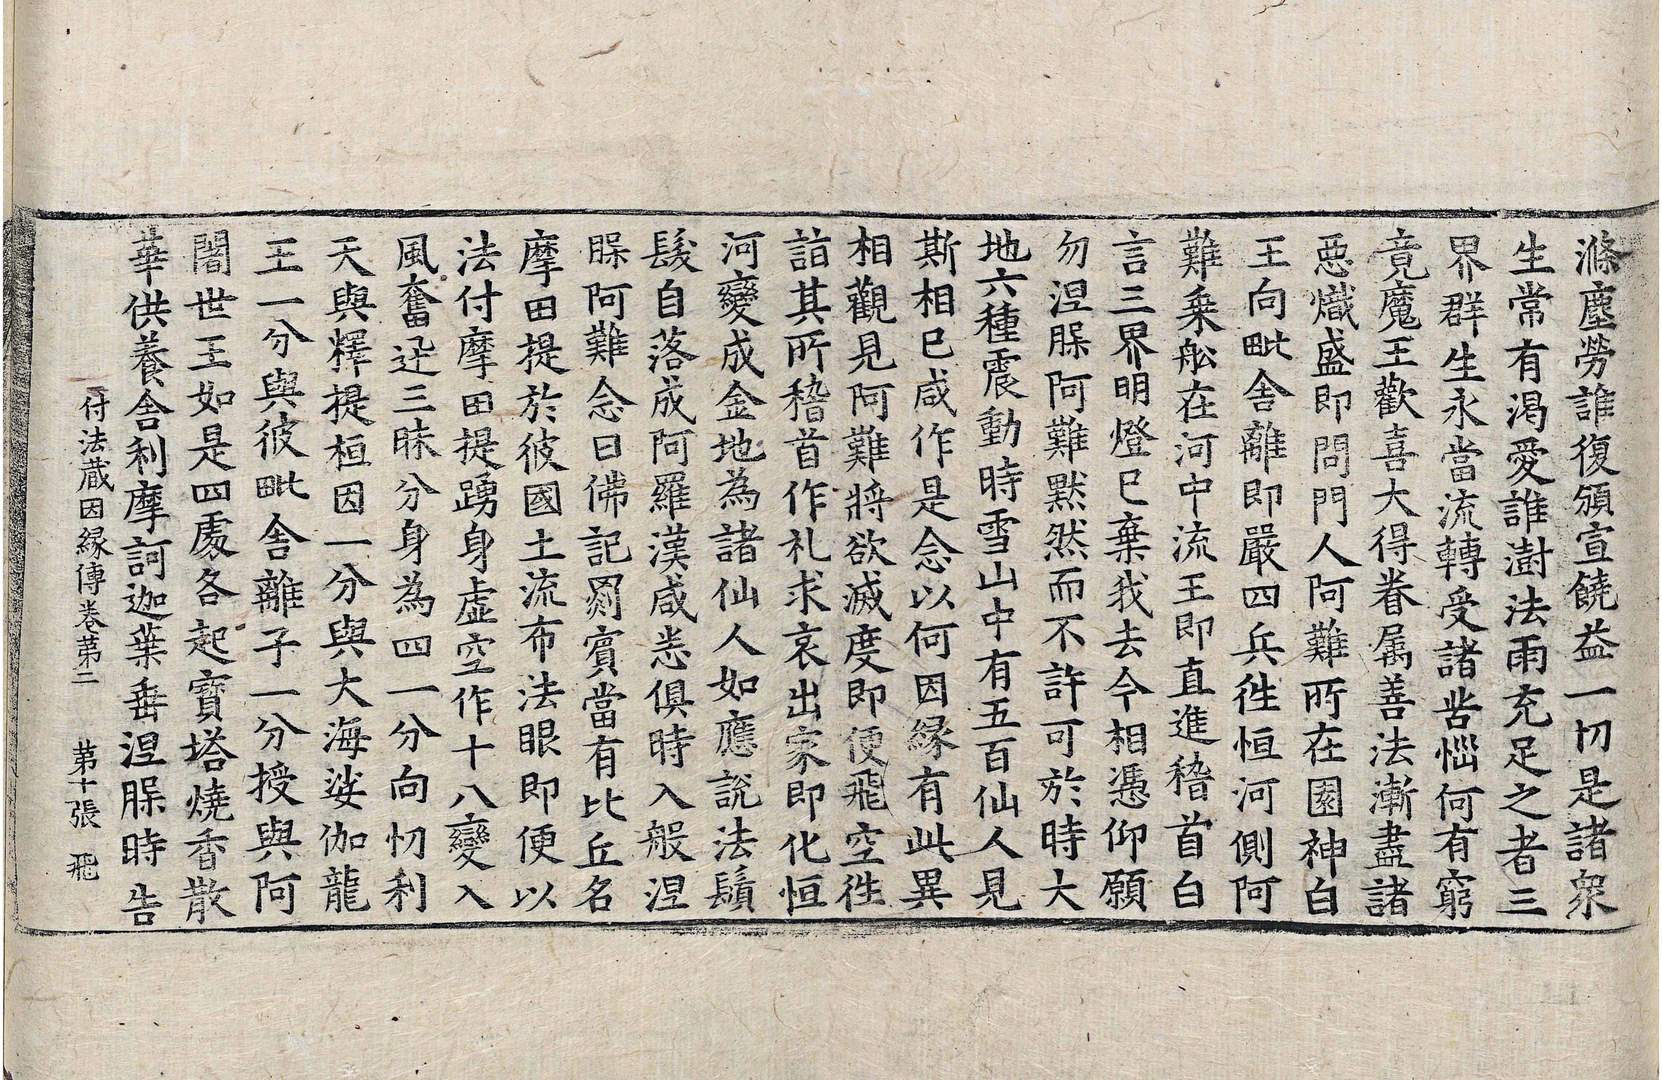 滌塵勞誰復頒宣饒益一切是諸衆
生常有渴愛誰澍法雨充足之者三
界群生永當流轉受諸苦惱何有窮
竟魔王歡喜大得眷属善法漸盡諸
惡熾盛即問門人阿難所在園神白
王向毗舍離即嚴四兵徃恒河側阿
難乗舩在河中流王即直進稽首白
言三界明燈已棄我去今相憑仰願
勿涅槃阿難黙然而不許可於時大
地六種震動時雪山中有五百仙人見
斯相已咸作是念以何因縁有此異
相觀見阿難將欲滅度即便飛空徃
詣其所稽首作礼求哀出家即化恒
河變成金地為諸仙人如應說法鬚
髮自落成阿羅漢咸悉俱時入般涅
槃阿難念曰佛記罽賓當有比丘名
摩田提於彼國土流布法眼即便以
法付摩田提踴身虛空作十八變入
風奮迅三昧分身為四一分向忉利
天與釋提桓因一分與大海娑伽龍
王一分與彼毗舍離子一分授與阿
闍世王如是四處各起寶塔燒香散
華供養舍利摩訶迦葉垂涅槃時告
付法蔵因縁傳卷苐二 苐十張 飛